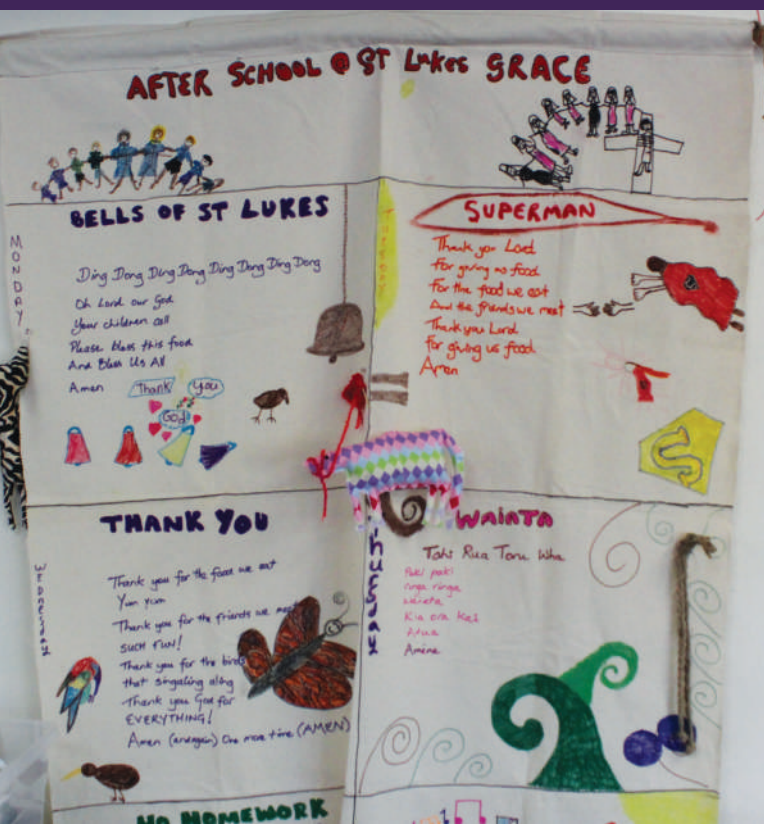 AFTER SCHOOL @ ST Lukes GRACE
MONDAY
BELLS OF ST LUKES
Ding Dong Ding Dong Ding Dong Ding Dong
Oh Lord our God
Your children call
Please bless this food
And Bless Us All
Amen
Thank You
God
TUESDAY
SUPERMAN
Thank you Lord
For giving us food
For the food we eat
And the friends we meet
Thank you Lord
For giving us food
Amen
S
WEDNESDAY
THANK YOU
Thank you for the food we eat
Yum yum
Thank you for the friends we meet
SUCH FUN!
Thank you for the birds
that sing along
Thank you God for
EVERYTHING!
Amen (and again) One more time (AMEN)
THURSDAY
WAIATA
Tahi Rua Toru Wha
Paki paki
ringa ringa
waiata
Kia ora Kai
Atua
Amine
NO HOMEWORK